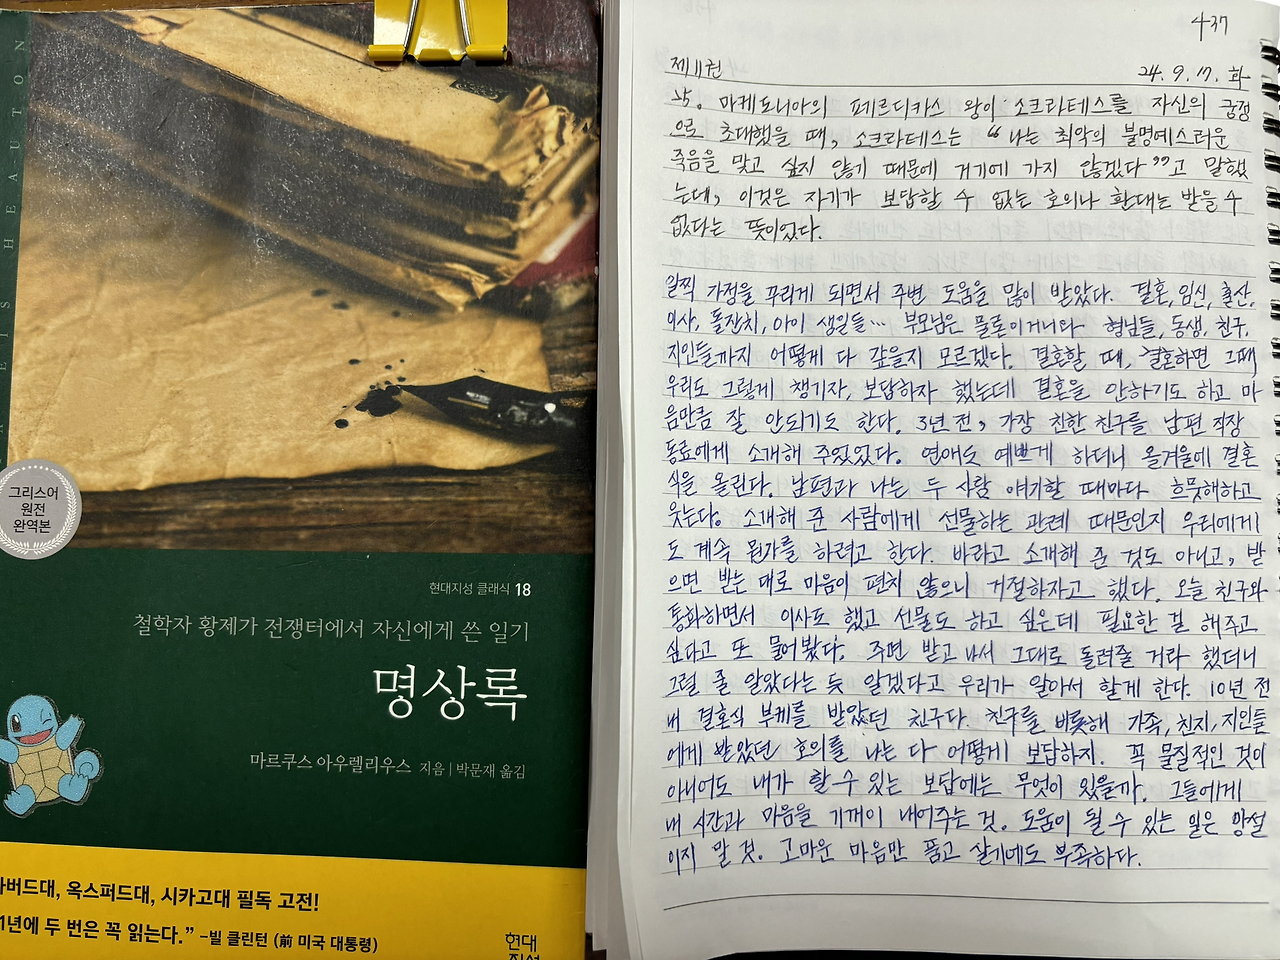 그리스어
원전
완역본
현대지성 클래식 18
철학자 황제가 전쟁터에서 자신에게 쓴 일기
명상록
마르쿠스 아우렐리우스 지음 | 박문재 옮김
아버드대, 옥스퍼드대, 시카고대 필독 고전!
1년에 두 번은 꼭 읽는다.” –빌 클린턴 (前 미국 대통령)
현대
437
제11권 24. 9. 17. 화
25. 마케도니아의 페르디카스 왕이 소크라테스를 자신의 궁정
으로 초대했을 때, 소크라테스는 “나는 최악의 불명예스러운
죽음을 맞고 싶지 않기 때문에 거기에 가지 않겠다”고 말했
는데, 이것은 자기가 보답할 수 없는 호의나 환대는 받을 수
없다는 뜻이었다.
일찍 가정을 꾸리게 되면서 주변 도움을 많이 받았다. 결혼, 임신, 출산,
이사, 돌잔치, 아이 생일들… 부모님은 물론이거니와 형님들, 동생, 친구,
지인들까지 어떻게 다 갚을지 모르겠다. 결혼할 때, 결혼하면 그때
우리도 그렇게 챙기자, 보답하자 했는데 결혼을 안하기도 하고 마
음만큼 잘 안되기도 한다. 3년 전, 가장 친한 친구를 남편 직장
동료에게 소개해 주었었다. 연애도 예쁘게 하더니 올겨울에 결혼
식을 올린다. 남편과 나는 두 사람 얘기할 때마다 흐뭇해하고
웃는다. 소개해 준 사람에게 선물하는 관례 때문인지 우리에게
도 계속 뭔가를 하려고 한다. 바라고 소개해 준 것도 아니고, 받
으면 받는 대로 마음이 편치 않으니 거절하자고 했다. 오늘 친구와
통화하면서 이사도 했고 선물도 하고 싶은데 필요한 걸 해주고
싶다고 또 물어봤다. 주면 받고 나서 그대로 돌려줄 거라 했더니
그럴 줄 알았다는 듯 알겠다고 우리가 알아서 할게 한다. 10년 전
내 결혼식 부케를 받았던 친구다. 친구를 비롯해 가족, 친지, 지인들
에게 받았던 호의를 나는 다 어떻게 보답하지. 꼭 물질적인 것이
아니어도 내가 할 수 있는 보답에는 무엇이 있을까. 그들에게
내 시간과 마음을 기꺼이 내어주는 것. 도움이 될 수 있는 일은 망설
이지 말 것. 고마운 마음만 품고 살기에도 부족하다.